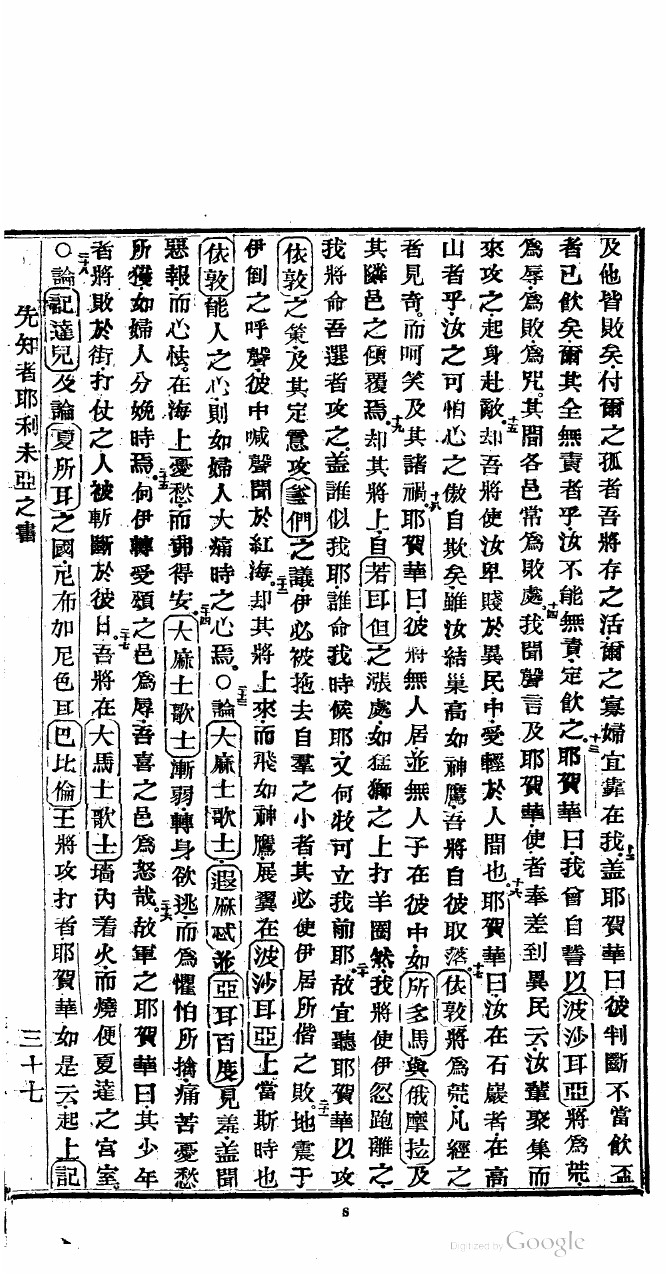 及他皆敗矣付爾之孤者吾將存之活爾之寡婦宜靠在我十二蓋耶賀華曰彼判斷不當飲盃
者已飲矣爾其全無責者乎汝不能無責定飲之十三耶賀華曰我曾自誓以波沙耳亞將為荒
為辱為敗為咒其間各邑常為敗處十四我聞聲言及耶賀華使者奉差到異民云汝輩聚集而
來攻之起身赴敵十五却吾將使汝卑賤於異民中受輕於人間也十六耶賀華曰汝在石巖者在高
山者乎汝之可怕心之傲自欺矣雖汝結巢高如神鷹吾將自彼取落十七依敦將為荒凡經之
者見奇而呵笑及其諸禍十八耶賀華曰彼將無人居並無人子在彼中如所多馬與俄摩拉及
其隣邑之傾覆焉十九却其將上自若耳但之漲處如猛獅之上打羊圈然我將使伊忽跑離之
我將命吾選者攻之蓋誰似我耶誰命我時候耶又何牧可立我前耶二十故宜聽耶賀華以攻
依敦之策及其定意攻䇹們之議伊必被拖去自羣之小者其必使伊居所偕之敗二十一地震于
伊倒之呼聲彼中喊聲聞於紅海二十二却其將上來而飛如神鷹展翼在波沙耳亞上當斯時也
依敦能人之心則如婦人大痛時之心焉○二十三論大麻士歌士遐麻忒並亞耳百度見羞蓋聞
惡報而心怯在海上憂愁而弗得安二十四大麻士歌士漸弱轉身欲逃而為懼怕所擒痛苦憂愁
所獲如婦人分娩時焉二十五何伊轉受頌之邑為辱吾喜之邑為怒哉二十六故軍之耶賀華曰其少年
者將敗於街打仗之人被斬斷於彼日二十七吾將在大馬士歌士墻內着火而燒便夏達之宮室
○二十八論記達兒及論夏所耳之國尼布加尼色耳巴比倫王將攻打者耶賀華如是云起上記
先知者耶利未亞之書 三十七
8
Digitized by Google